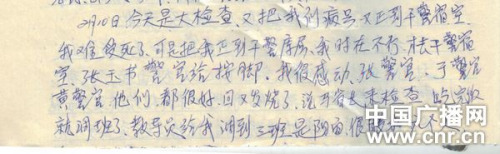 2月10日今天是大检查又把我们病号又正到干警宿室
我难受死了,可是把我正到干警库房,我时在不行,去干警宿
室,张玉书警官给按脚,我很感动,张警官,于警官
黄警官,他们,都很好,回又发烧了,说,是来检查,吃完收
就调班了,教导员给我调到三班是阴面,很
中国广播网
www.cnr.cn